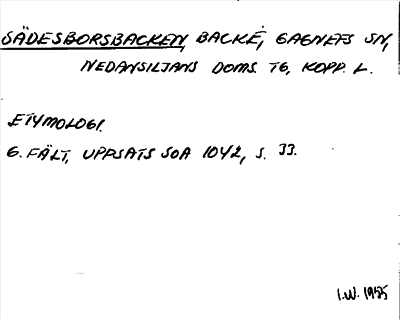 SÄDESBORSBACKEN, BACKE, GAGNEFS SN,
NEDANSILJANS DOMS. TG, KOPP. L.
ETYMOLOGI.
G. FÄLT, UPPSATS SOA 1042, S. 33.
I.W. 1955